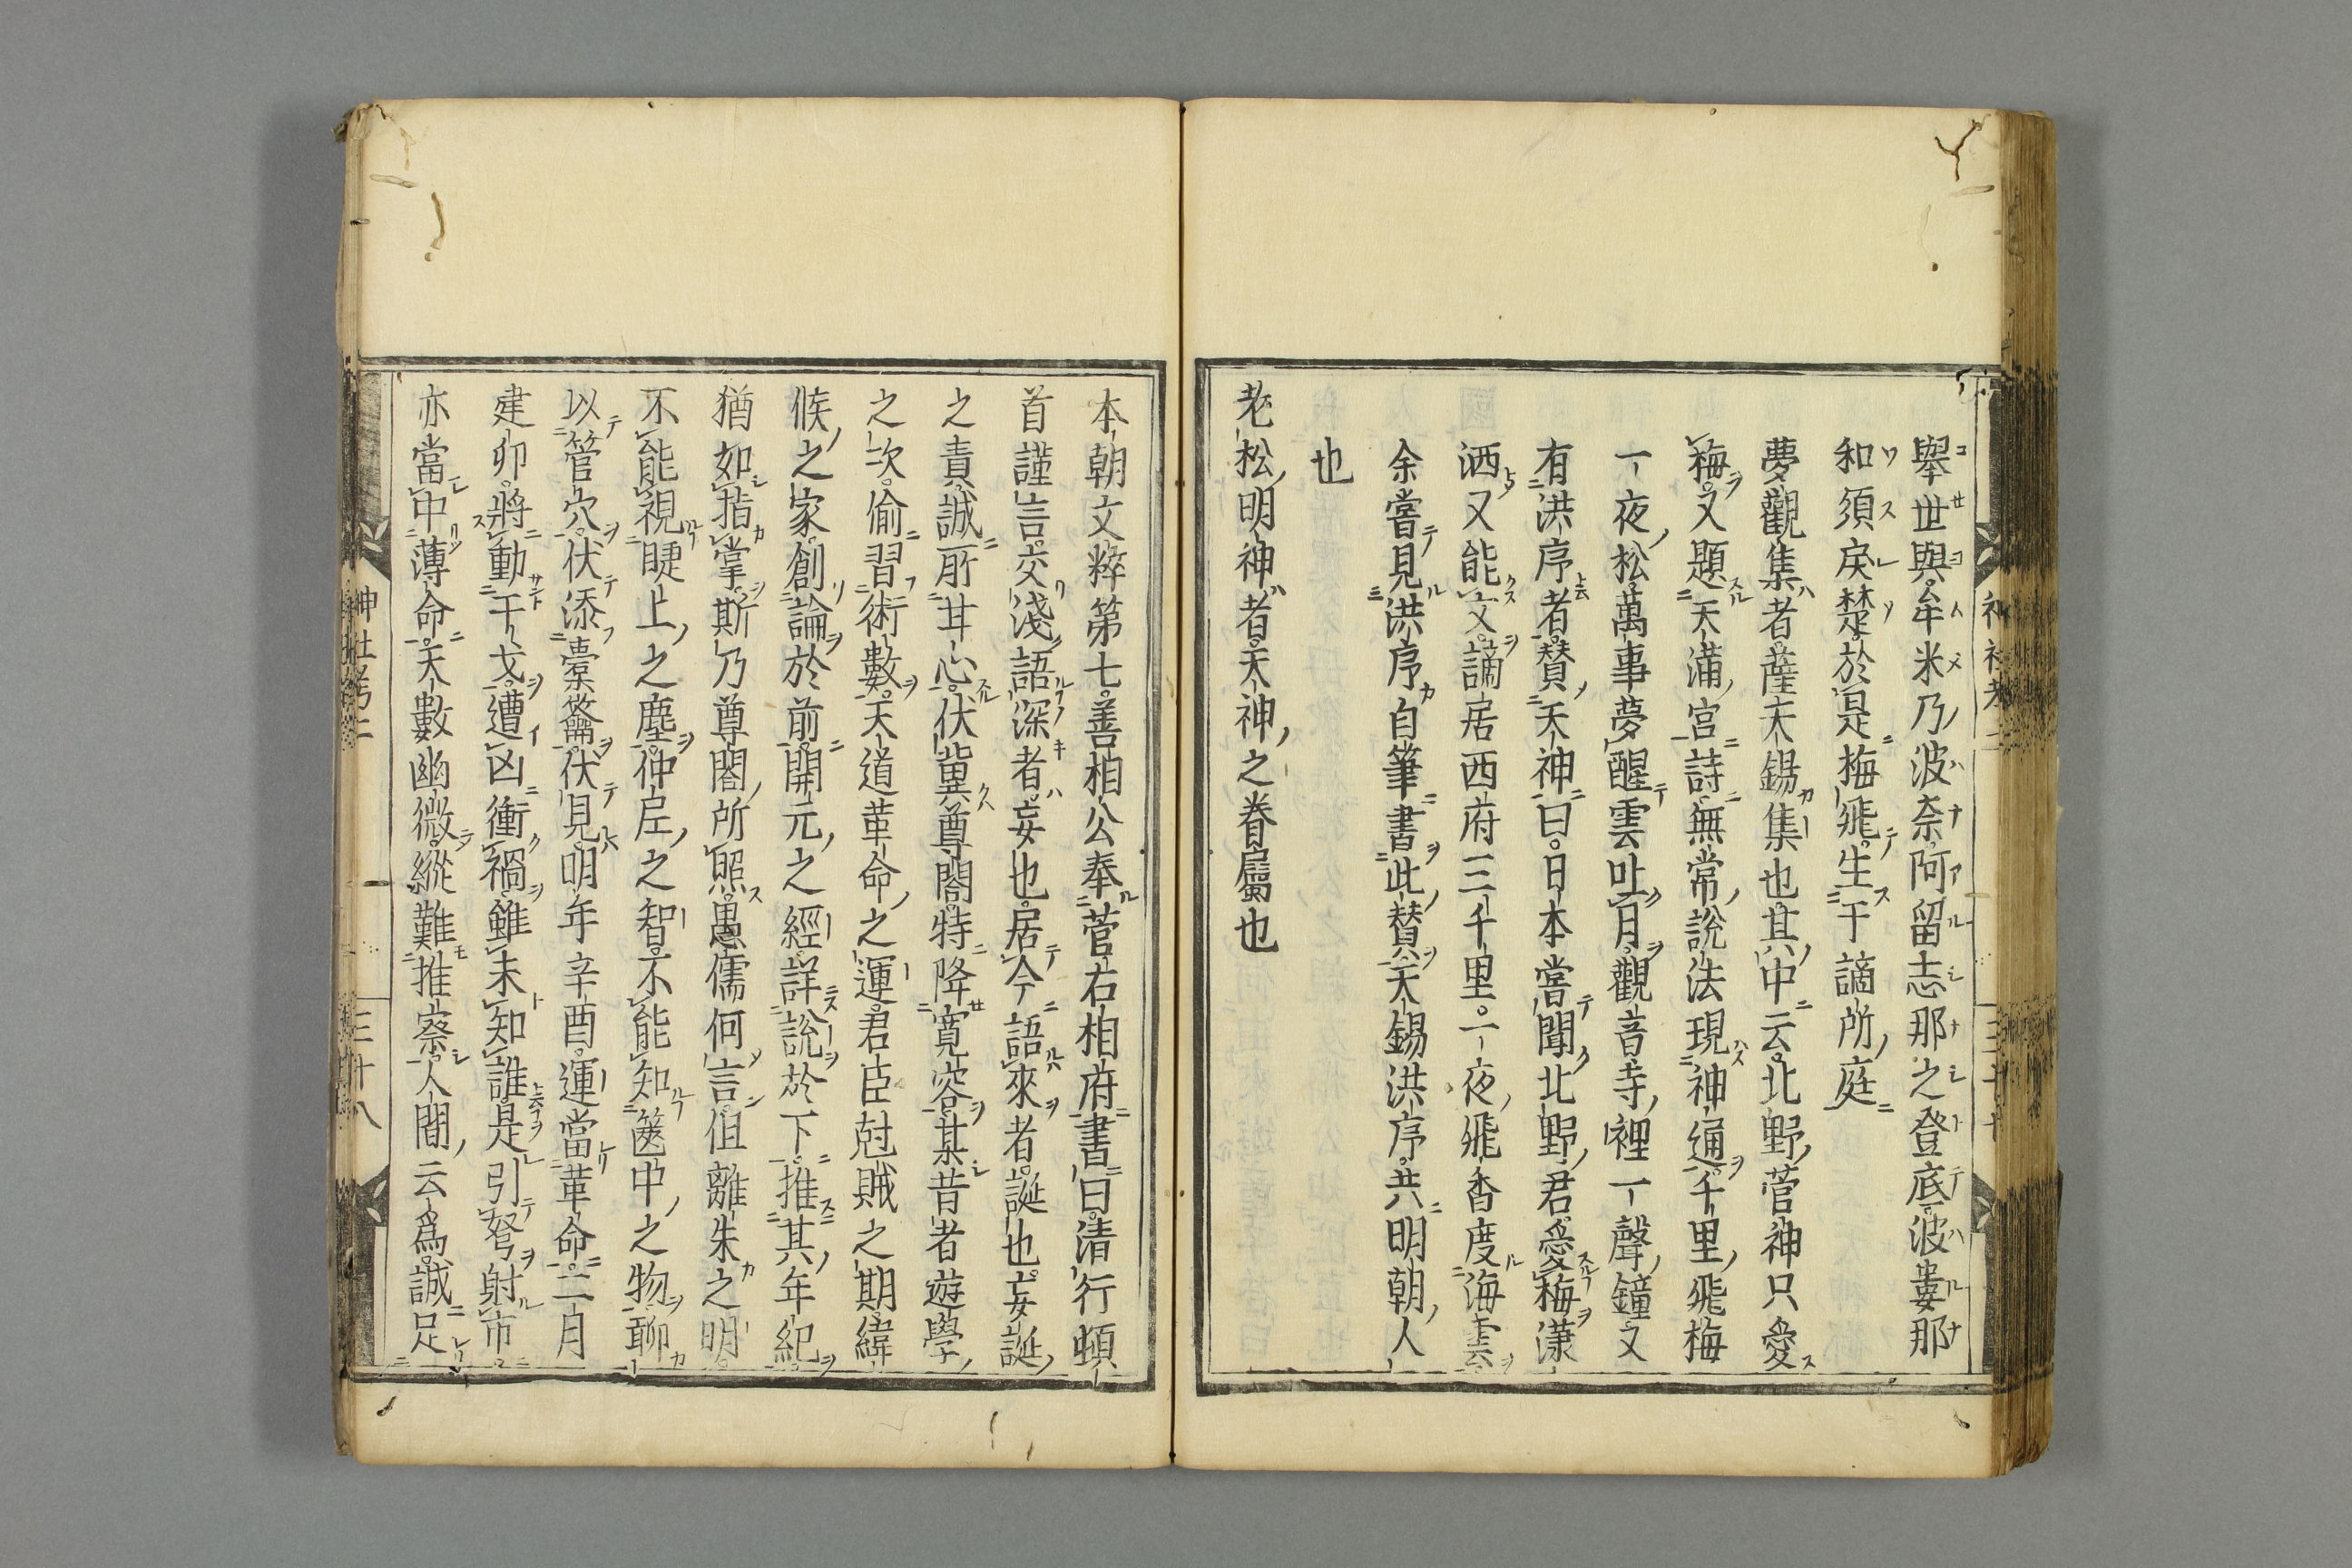 擧世與牟米乃波奈阿留志那之登底波婁那
和須戻楚於是梅飛生于謫所庭
夢觀集者薩天錫集也其中云北野菅神只愛
梅又題天滿宮詩無常說法現神通千里飛梅
一夜松萬事夢醒雲吐月觀音寺裡一聲鐘又
有洪序者賛天神曰日本嘗聞北野君愛梅瀟
洒又能文謫居西府三千里一夜飛香度海雲
余嘗見洪序自筆書此賛天錫洪序共明朝人
也
老松明神者天神之眷屬也
神社考二
三十七
本朝文粹第七善相公奉菅右相府書曰清行頓
首謹言交淺語深者妄也居今語來者誕也妄誕
之責誠所甘心伏冀尊閤特降寛容某昔者遊學
之次偷習術數天道革命之運君臣尅賊之期緯
候之家創論於前開元之經詳說於下推其年紀
猶如指掌斯乃尊閤所照愚儒何言但離朱之明
不能視睫上之塵仲尼之智不能知篋中之物聊
以管穴伏添橐籥伏見明年辛酉運當革命二月
建卯將動干戈遭凶衝禍雖未知誰是引弩射市
亦當中薄命天數幽微縱難推察人間云爲誠足
神社考二
三十八